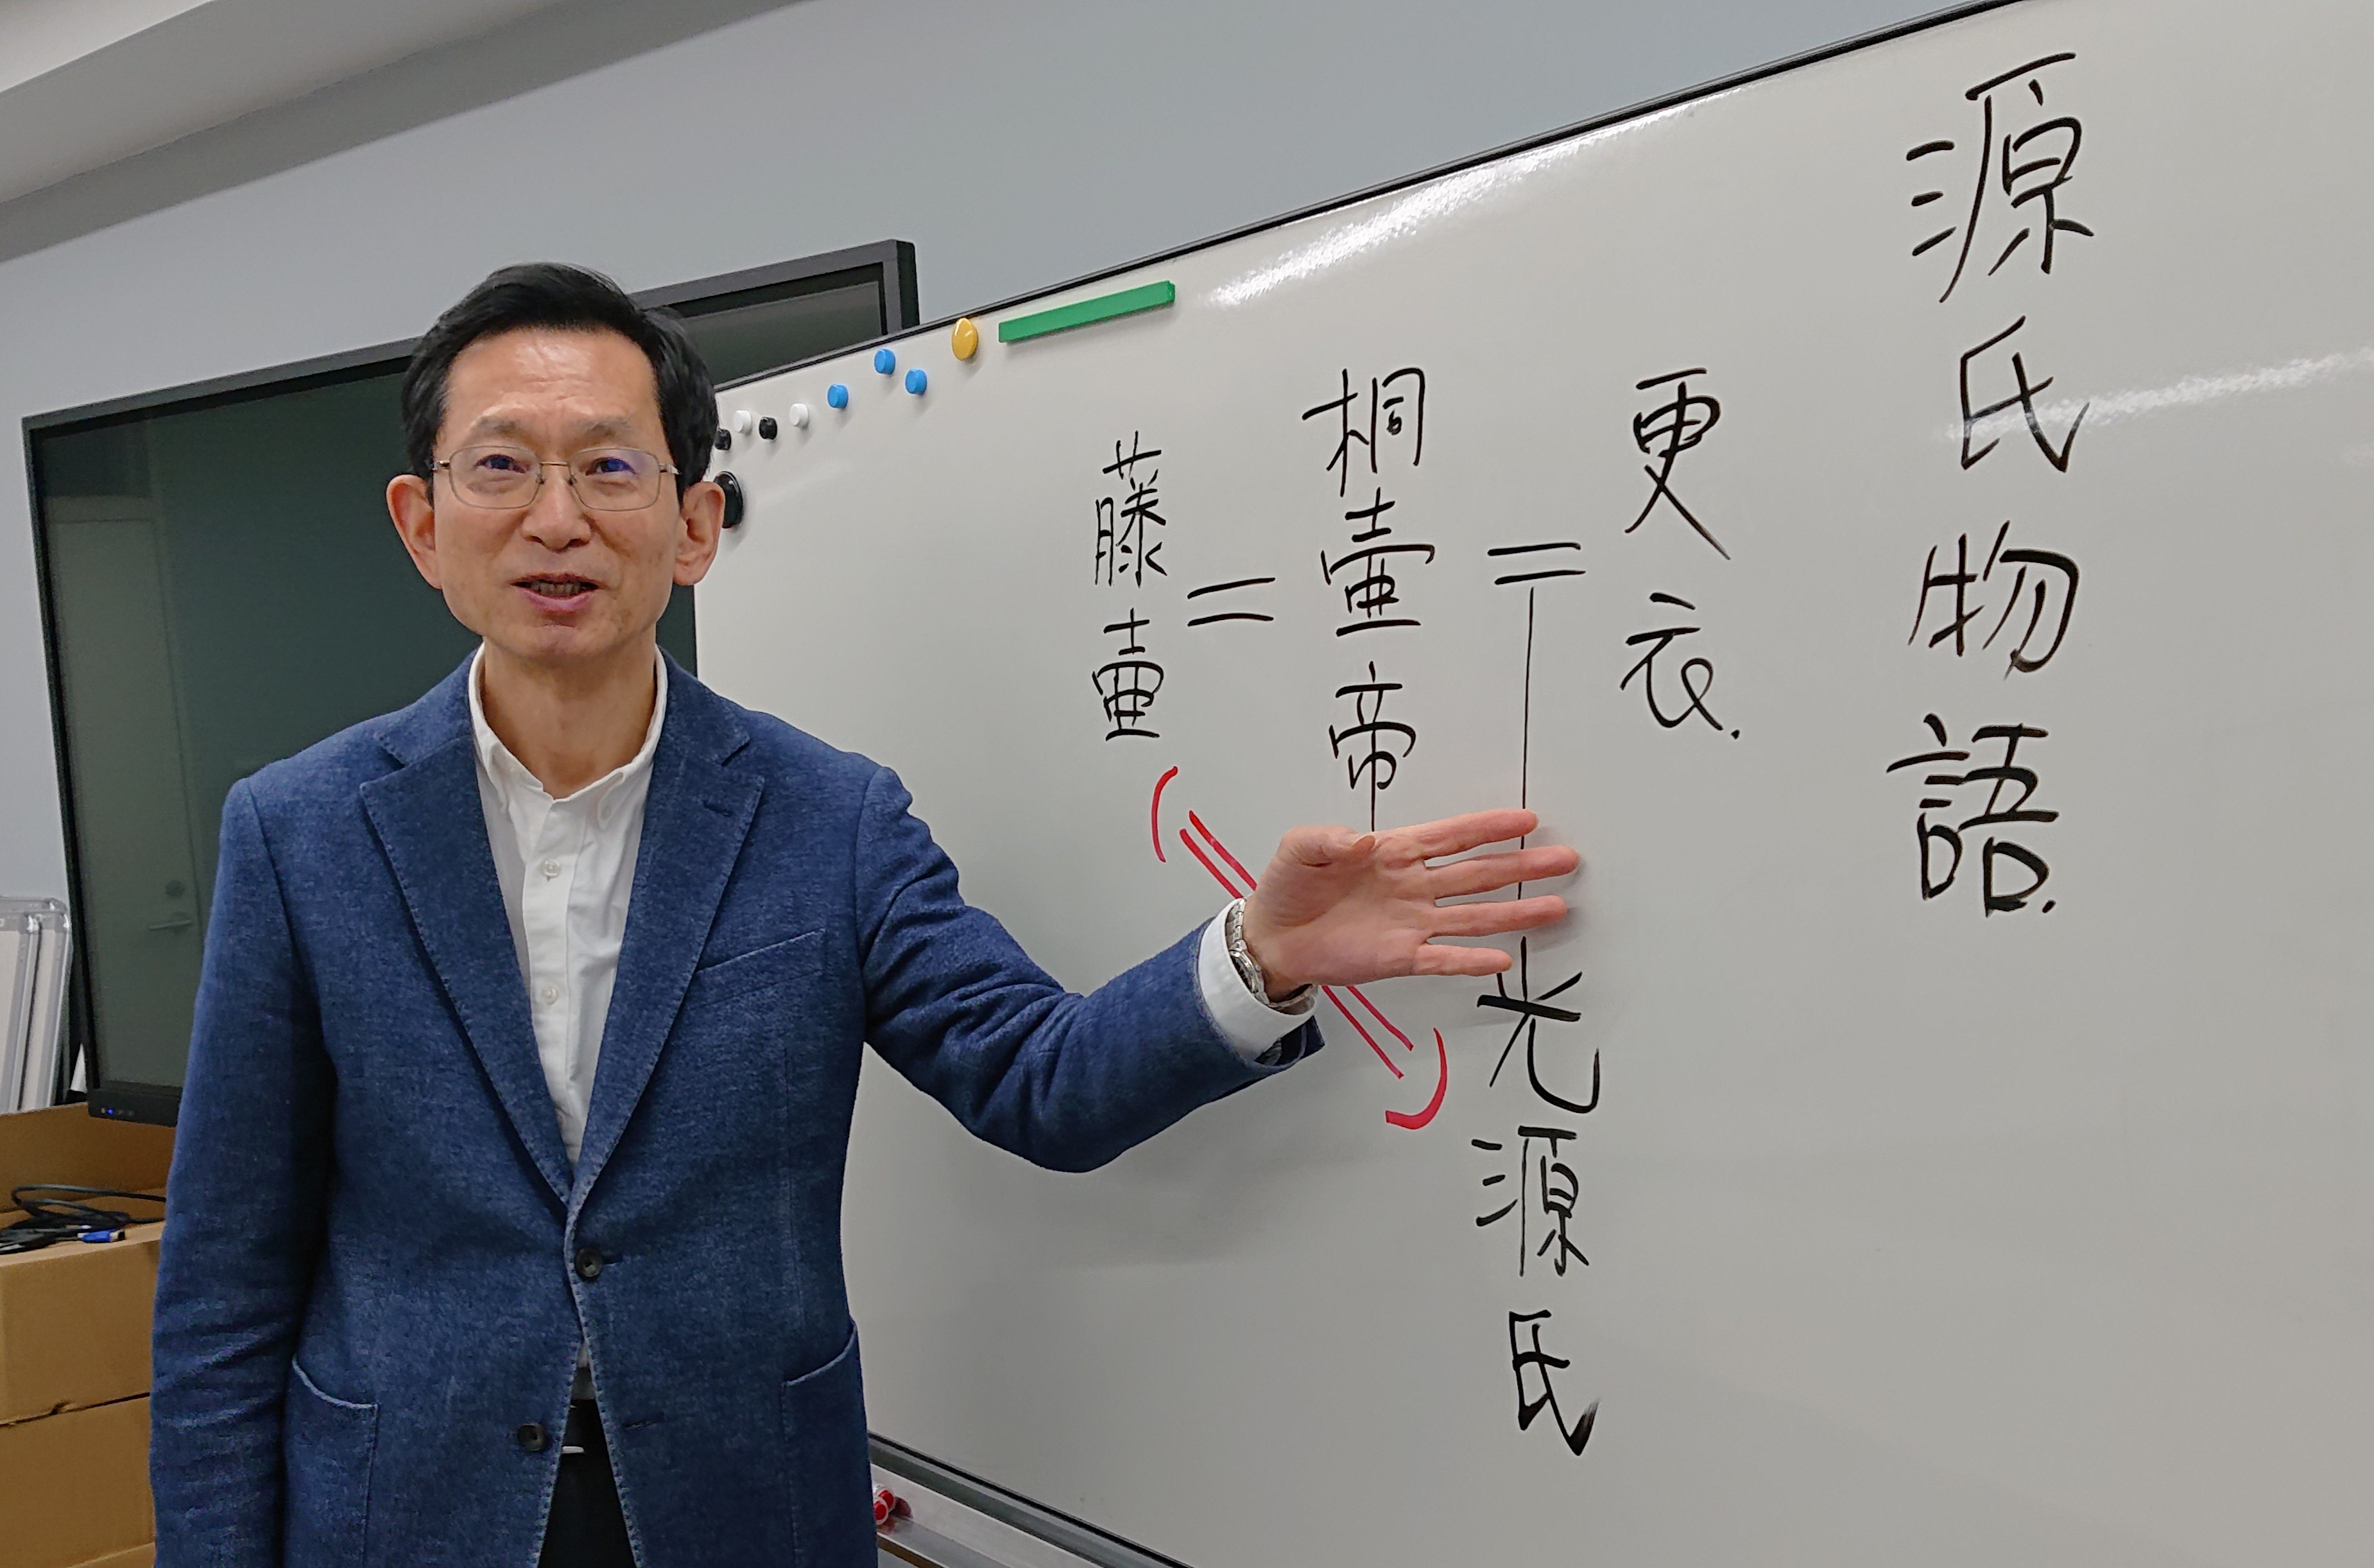 源氏物語
更衣
桐壷帝
藤壷
光源氏